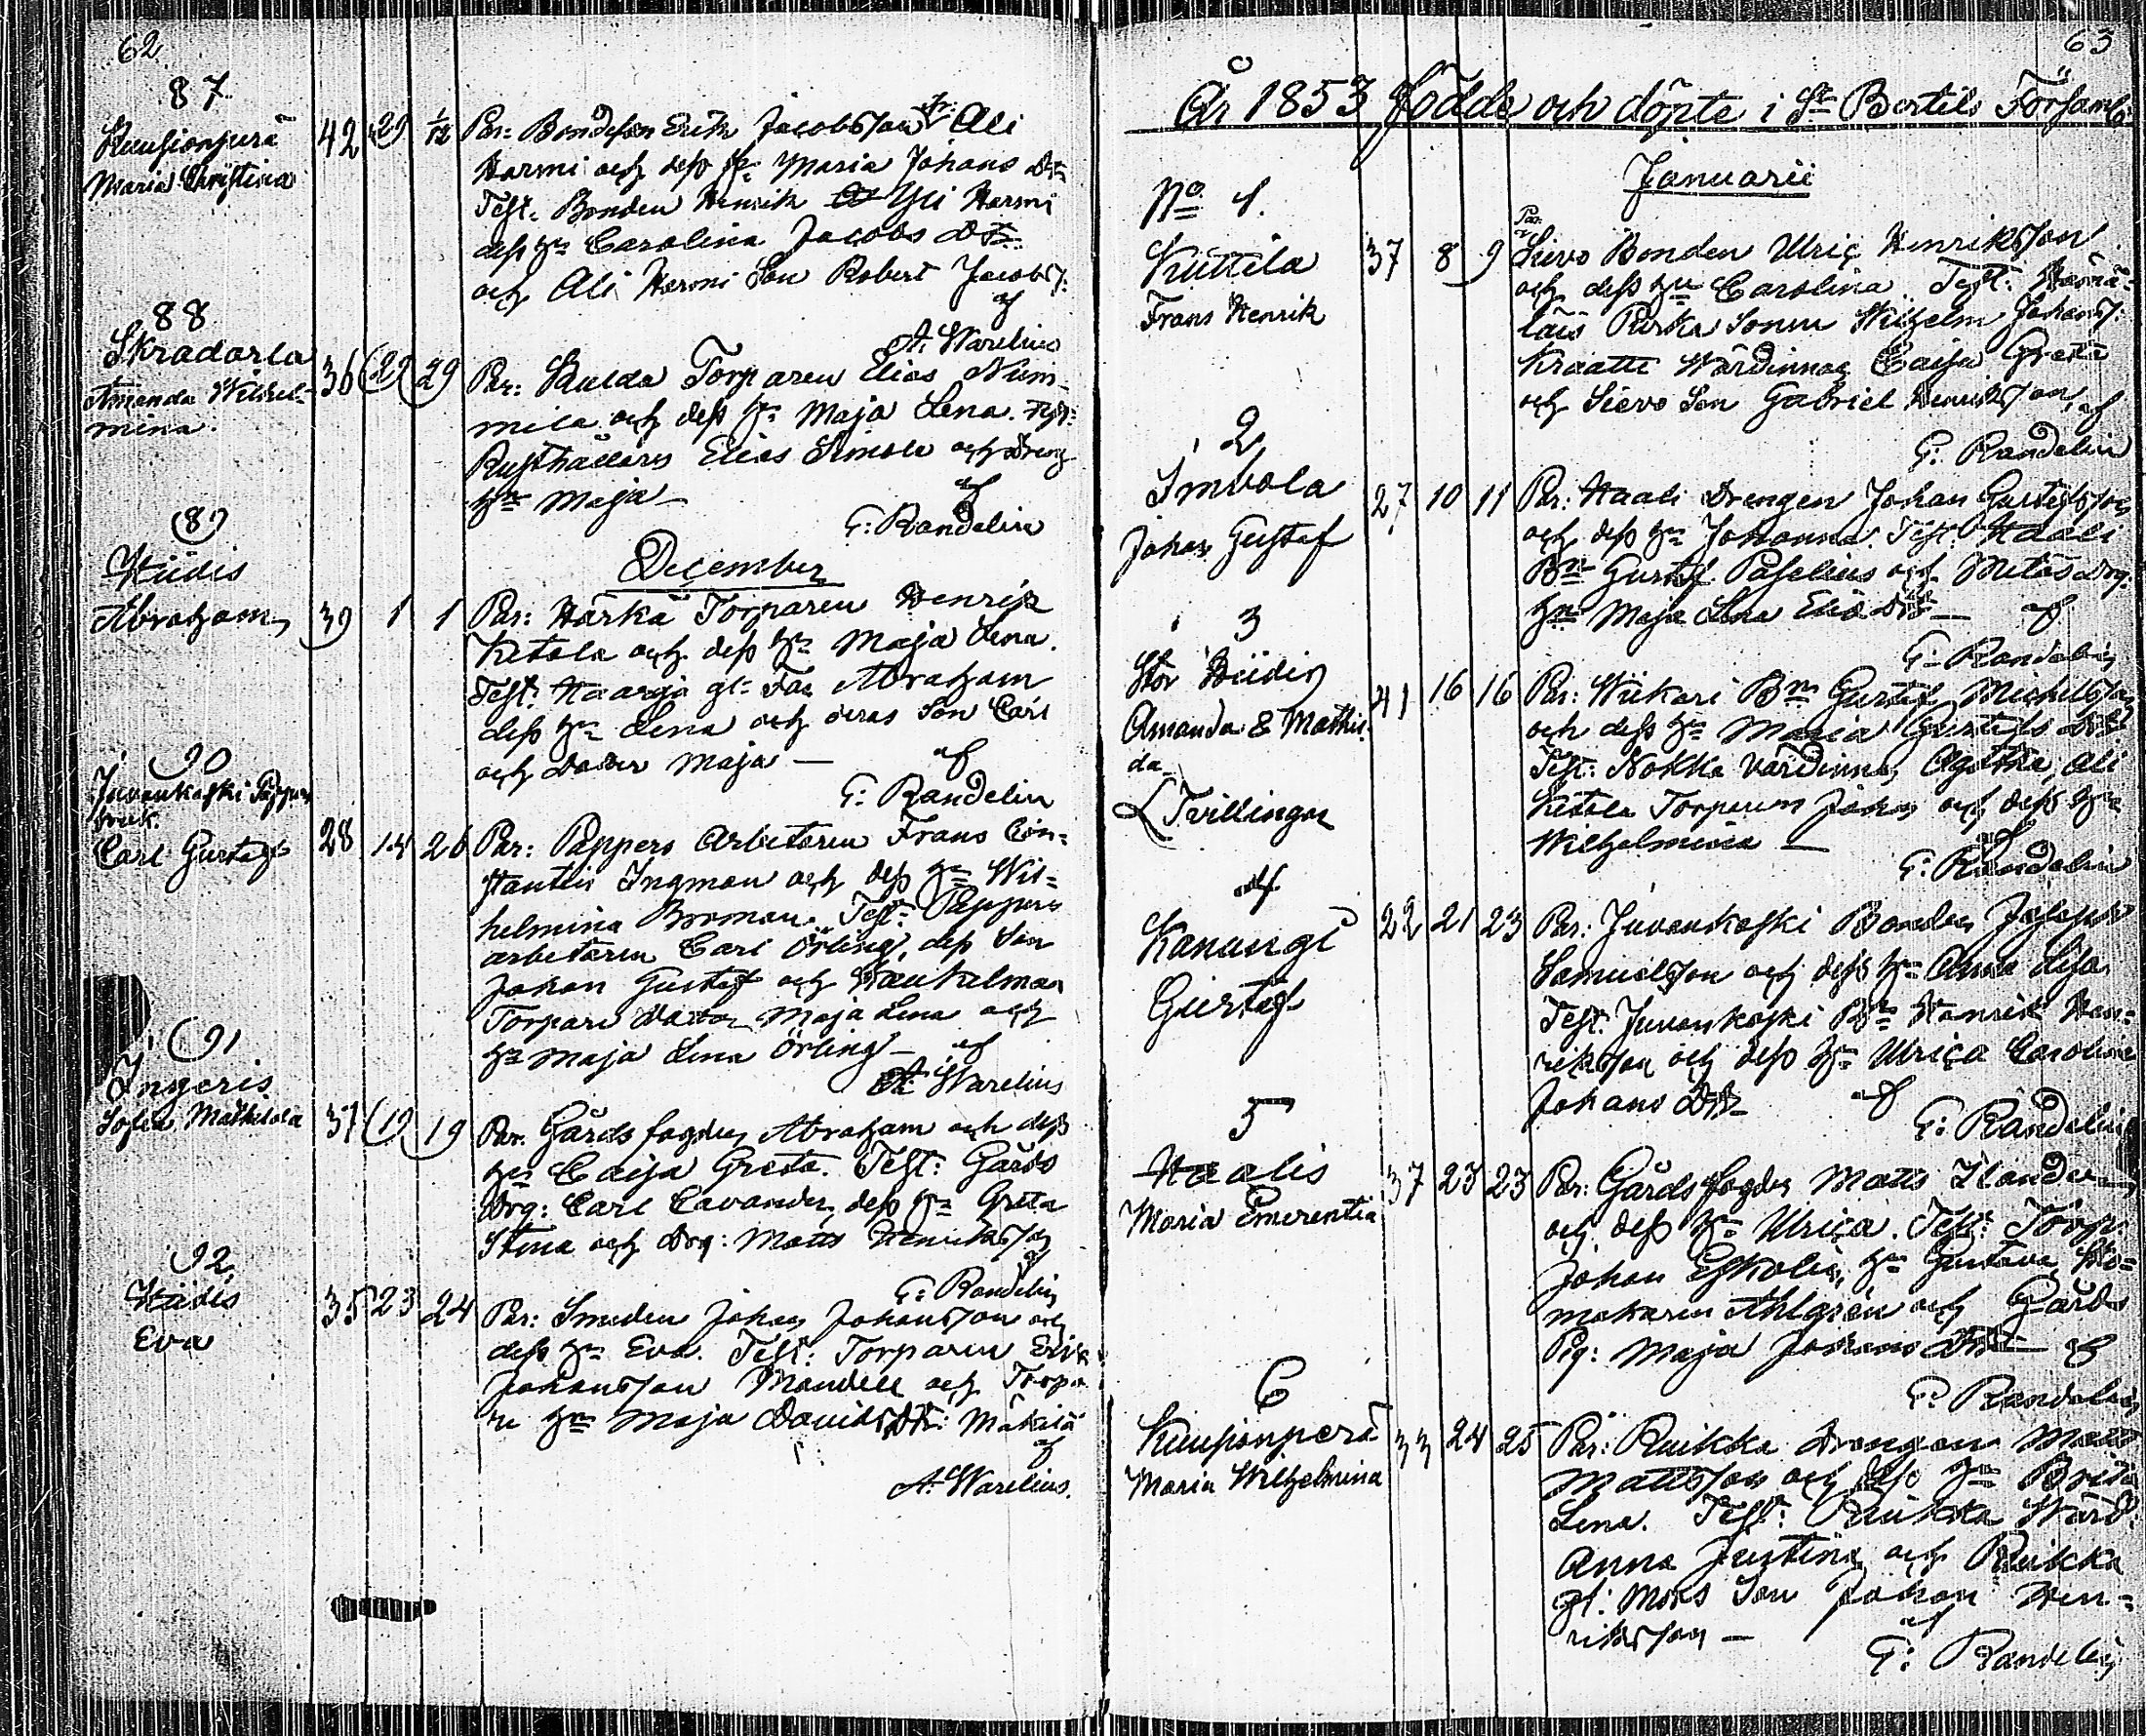 62
87
Kuusionperä
Maria Christina
42 29 1/12
Par: Bondeson Erik Jacobsson fr: Ali
Harmi och dess hu Maria Johans Dr
Test. Bonden Henrik Yli Harmi
dess hu Carolina Jacobs Dr
och Ali Harmi Son Robert Jacobs:
af
A. Warelius
88
Skradarla
Amanda Wilhel-
mina.
36 29 29
Par: Torparen Elias Num-
mila och dess hu Maja Lena. Test:
Rusthållarn Elias Simola och Dreng
hu Maja —
af
G: Randelin
December
89
Hiidis
Abraham
39 1 1
Par: Härkä Torparen Henrik
Ketola och dess hu Maja Lena.
Test: Haarja gl: Far Abraham
dess hu Lena och deras Son Carl
och Dotter Maja — af
G: Randelin
90
Juvankoski Pappers
bruk.
Carl Gustaf
28 14 26
Par: Pappers Arbetaren Frans Con-
stantin Ingman och dess hu Wil-
helmina Broman. Test: Pappers
arbetaren Carl Örling, dess Son
Johan Gustaf och
Torpare Dotter Maja Lena och
hu Maja Lena Örling — af
A. Warelius
91
Ingeris
Sofia Mathilda
37 19 19
Par. Gårds fogden Abraham och dess
hu Caisa Greta. Test: Gårds
Drg: Carl Cavander, dess hu Greta
Stina och Drg: Matts Henriksson
af
G: Randelin
92
Hiidis
Eva
35 23 24
Par: Smeden Johan Johansson och
dess hu Eva. Test: Torparen Erik
Johansson Mandell och Torpa
re hu Maja Davids Dr: Mäkilä
af
A. Warelius.
63
År 1853 Födde och döpte i St Bertils Församl:
Januarii
No 1.
Kuttila
Frans Henrik
37 8 9
Par:
Sievo Bonden Ulric Henriksson
och dess hu Carolina. Test: Hämä-
läis Pirka Sonen Wilhelm Johans:
Kraatti Wärdinnan Caisa Greta
och Sievo Son Gabriel Henriksson, af
G: Randelin
2
Imbola
Johan Gustaf
27 10 11
Par: Haali Drengen Johan Gustafsson
och dess hu Johanna. Test: Haali
Bn Gustaf Paselius och Metäs Drg.
hu Maja Lena Elias Dr — af
G: Randelin
3
Stor Hiidis
Amanda & Mathil-
da
Tvillingar
41 16 16
Par: Wiikari Bn Gustaf Michelsson
och dess hu Maria Gustafs Dr
Test: Nokka Värdinna Agatha, Ali
Ketola Torparen Johan och dess hu
Wilhelmina — af
G: Randelin
4
Kanungi
Gustaf
22 21 23
Par: Juvankoski Bonden Joseph
Samuelsson och dess hu Anna Lisa
Test: Juvankoski Bn Henrik Hen-
riksson och dess hu Ulrica Carolina
Johans Dr — af
G: Randelin
5
Haalis
Maria Emerentia
37 23 23
Par: Gårds fogden Matts
och dess hu Ulrica. Test: Torp.
Johan Eskolin, hu Gustava, Sko-
makaren Ahlgrén och Gårds
Pig: Maja Johans Dr — af
G: Randelin
6
Kuusionperä
Maria Wilhelmina
33 24 25
Par: Ruikka Drengen Matts
Mattsson och dess hu Brita
Lena. Test: Ruikka Wärd:
Anna Justina och Ruikka
gl: Mors Son Johan Hen-
riksson — af
G: Randelin